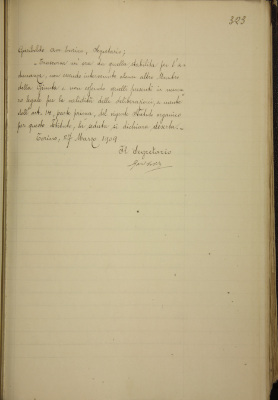 303
Garibaldi avv. Enrico, Segretario;
Trascorsa un' ora da quella stabilita per l'a-
dunanza, non essendo intervenuto alcun altro Membro
della Giunta e non essendo quelli presenti in nume-
ro legale per la validità delle deliberazioni, a mente
dell' art. 14, parte prima, del vigente Statuto organico
per questo Istituto, la seduta si dichiara deserta. -
Torino, 17 Marzo 1909
Il Segretario